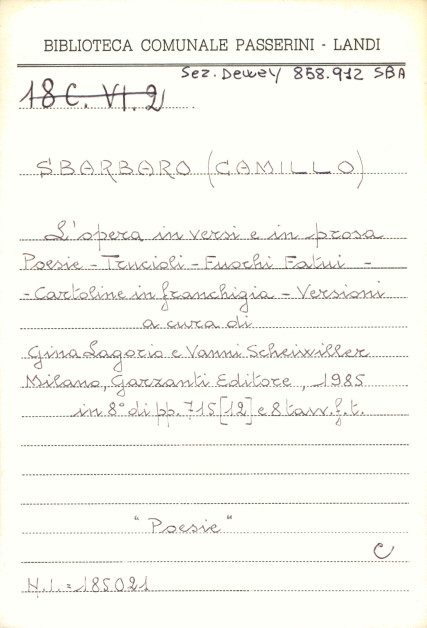 BIBLIOTECA COMUNALE PASSERINI - LANDI
Sez. Dewey 858.912 SBA
18C. VI. 2
SBARBARO (CAMILLO)
L'opera in versi e in prosa
Poesie - Trucioli - Fuochi Fatui -
- Cartoline in franchigia - Versioni
a cura di
Gina Lagorio e Vanni Scheiwiller
Milano, Garzanti Editore, 1985
in 8° di pp. 715 [12] e 8 tavv. f. t.
"Poesie"
C
N.I. = 185021